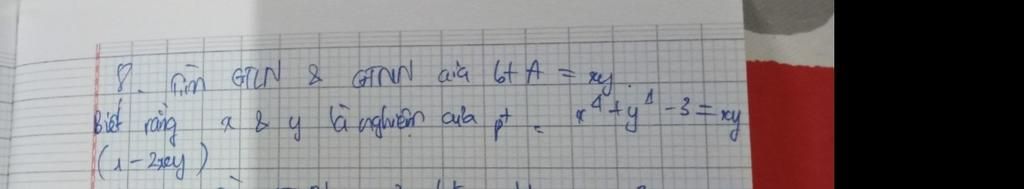 8. Tìm GTLN & GTNN của bt A = xy.
Biết rằng x & y là nghiệm của pt = x⁴ + y⁴ - 3 = xy
(1 - 2xy)